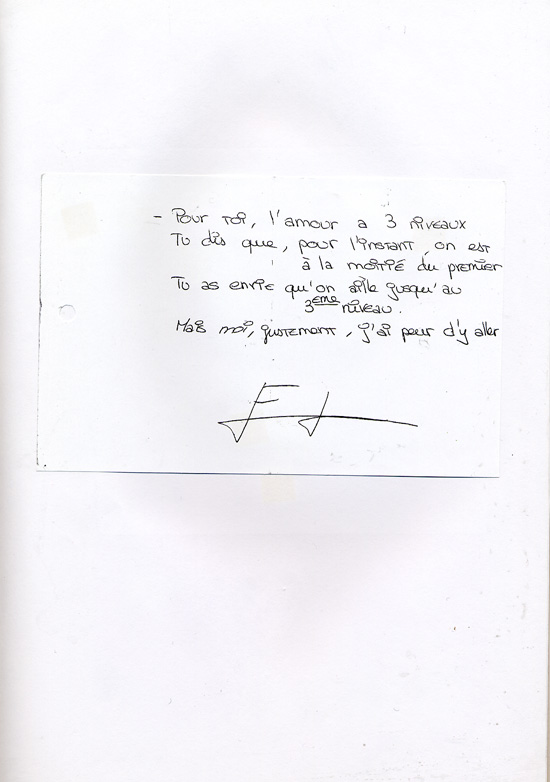 - Pour toi, l'amour a 3 niveaux
Tu dis que, pour l'instant, on est
à la moitié du premier
Tu as envie qu'on aille jusqu'au
3ème niveau.
Mais moi, justement, j'ai peur d'y aller